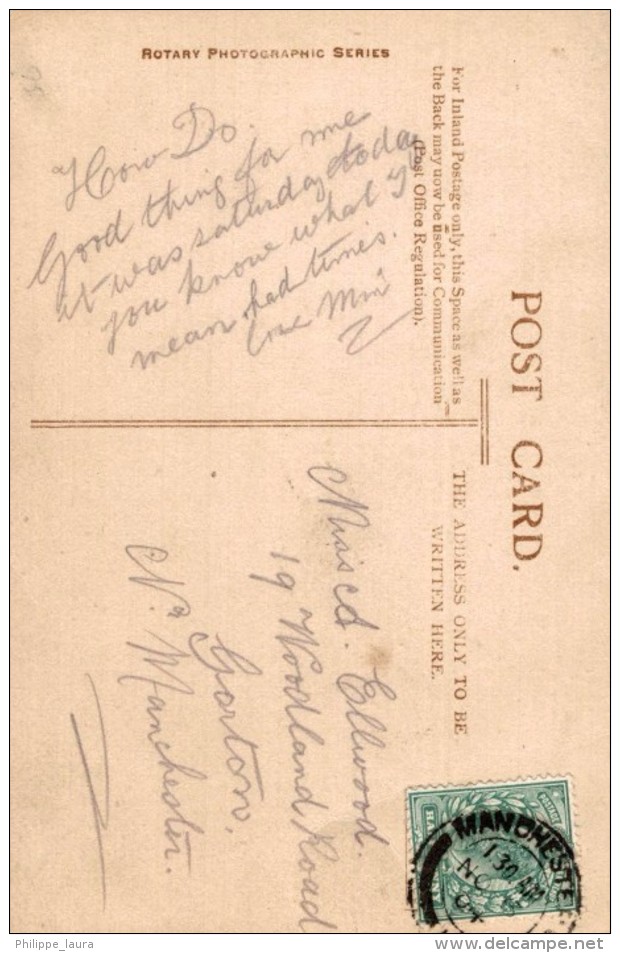 ROTARY PHOTOGRAPHIC SERIES
POST CARD.
For Inland Postage only, this Space as well as
the Back may now be used for Communication
(Post Office Regulation).
THE ADDRESS ONLY TO BE
WRITTEN HERE.
How Do.
Good thing for me
it was saturday today
you know what I
mean, bad times.
love Min
Miss A. Ellwood.
19 Woodland Road
Gorton,
Nr Manchester.
MANCHESTE
1.30 AM
NO
04
Philippe_laura